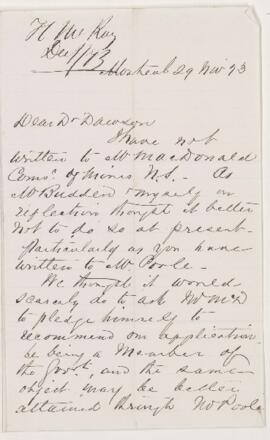 H McKay
Dec 1/73
Montreal 29 Nov 73
Dear Dr Dawson
I have not
written to Mr MacDonald
Coms. of Mines N.S. - As
Mr Budden & myself on
reflection thought it better
not to do so at present -
particularly as you have
written to Mr Poole -
We thought it would
scarcely do to ask Mr McD
to pledge himself to
recommend our application
he being a Member of
the Govt, and the same
object may be better
attained through Mr Poole